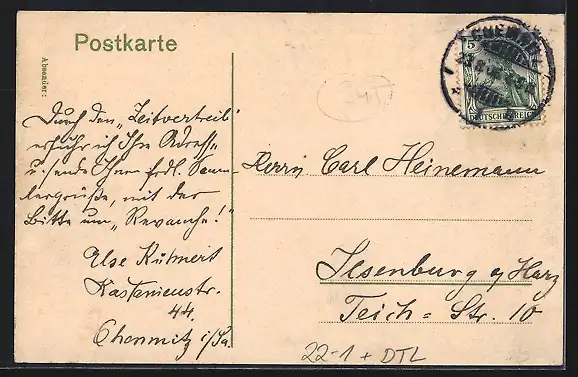 Postkarte
Absender:
Durch den „Zeitvertreib“
erfuhr ich Ihre Adresse
u. sende Ihnen frdl. Samm-
lergrüße, mit der
Bitte um „Revanche!“
Else Kühnert
Kastanienstr.
44.
Chemnitz i/Sa.
CHEMNITZ
5 5
DEUTSCHES REICH
Herrn Carl Heinemann
Ilsenburg a/Harz
Teich-Str. 10
22-1 + DTL